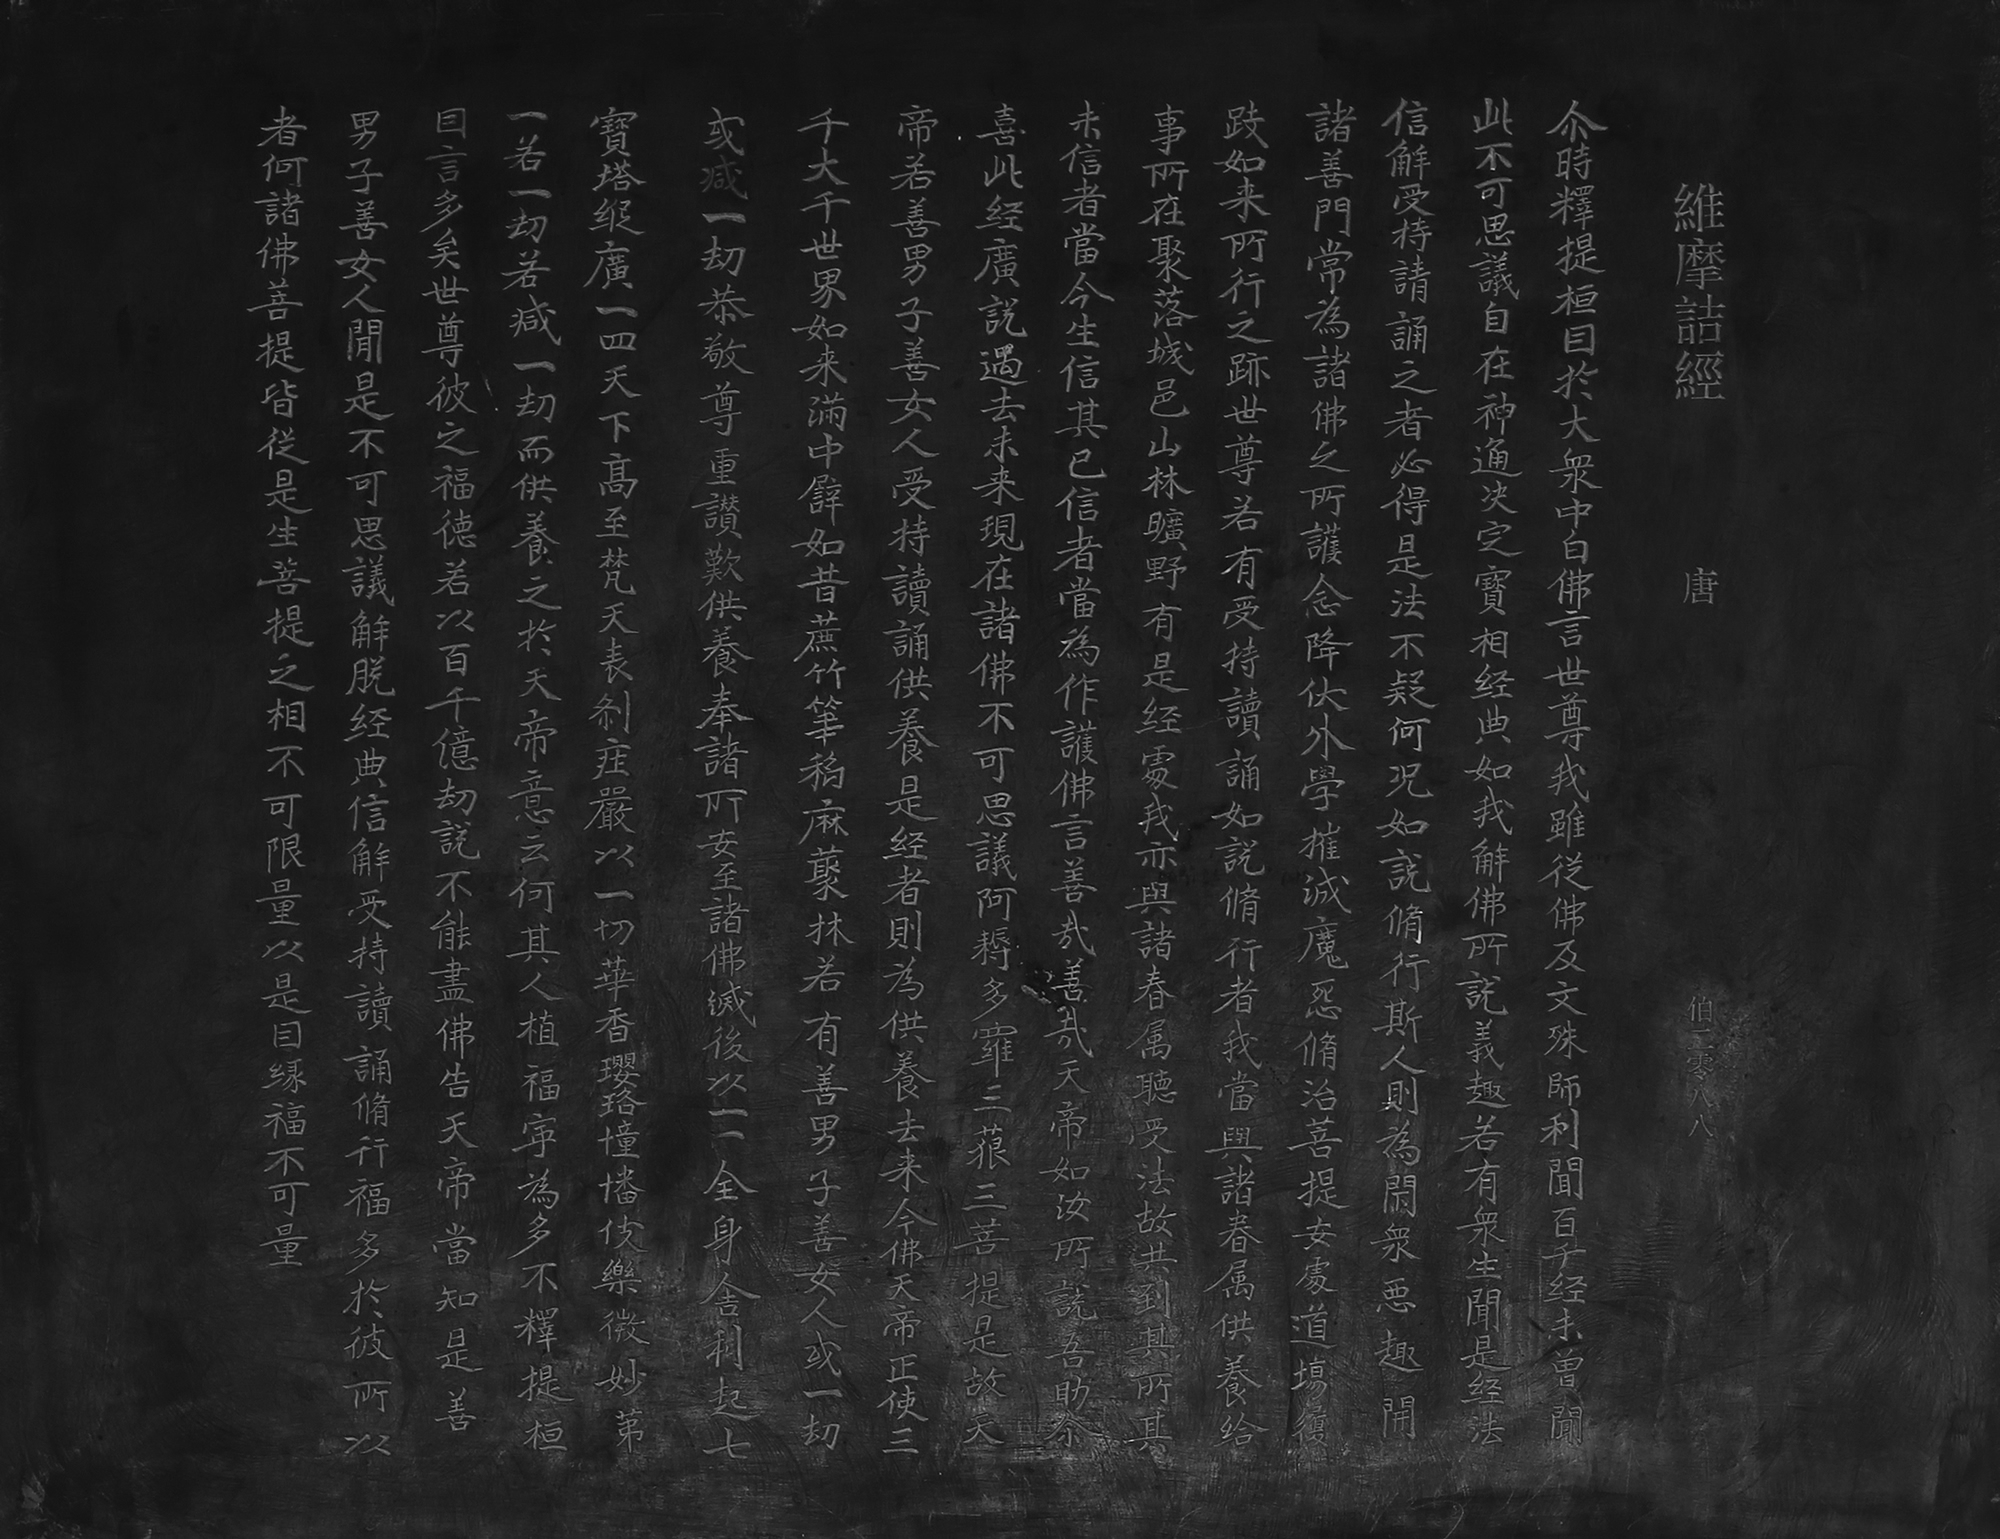 維摩詰經 唐 伯二零八八
尒時釋提桓因於大衆中白佛言世尊我雖従佛及文殊師利聞百千经未曾聞
此不可思議自在神通决定寶相经典如我解佛所說義趣若有衆生聞是经法
信解受持請誦之者必得是法不疑何况如說脩行斯人則為閇衆悪趣開
諸善門常為諸佛之所護念降伏外學摧滅魔怨脩治菩提安處道場履
跂如来所行之跡世尊若有受持讀誦如說脩行者我當與諸眷属供養給
事所在聚落城邑山林曠野有是经處我亦與諸眷属聽受法故共到其所其
未信者當今生信其已信者當為作護佛言善哉善哉天帝如汝所說吾助尒
喜此经廣説過去未来現在諸佛不可思議阿耨多羅三藐三菩提是故天
帝若善男子善女人受持讀誦供養是经者則為供養去来今佛天帝正使三
千大千世界如来滿中辟如甘蔗竹葦稻麻藂林若有善男子善女人或一劫
或減一劫恭敬尊重讃歎供養奉諸所安至諸佛滅後以一一全身舎利起七
寶塔縱廣一四天下髙至梵天表刹庄嚴以一切華香瓔珞憧憣伎樂微妙第
一若一劫若減一劫而供養之於天帝意云何其人植福寧為多不釋提桓
因言多矣世尊彼之福徳若以百千億劫說不能盡佛告天帝當知是善
男子善女人聞是不可思議解脱经典信解受持讀誦脩行福多於彼所以
者何諸佛菩提皆従是生菩提之相不可限量以是因縁福不可量